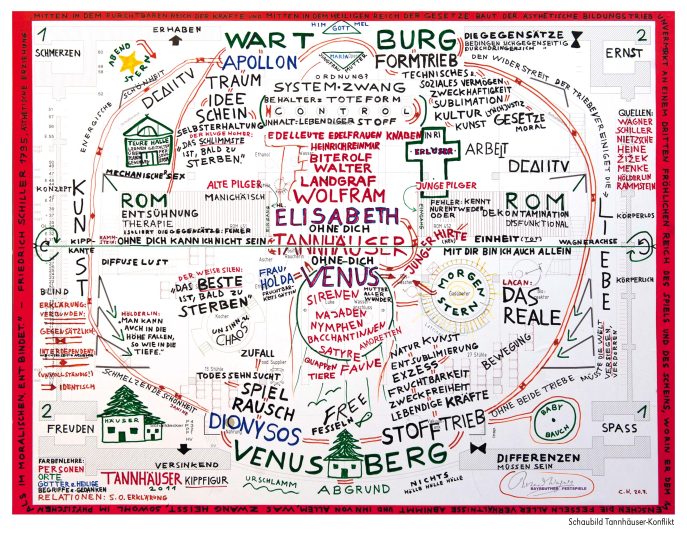 MITTEN IN DEM FURCHTBAREN REICH DER KRÄFTE UND MITTEN IN DEM HEILIGEN REICH DER GESETZE BAUT DER ÄSTHETISCHE BILDUNGSTRIEB
UNVERMERKT AN EINEM DRITTEN FRÖHLICHEN REICH DES SPIELS UND DES SCHEINS, WORIN ER DEM
IM MORALISCHEN, ENTBINDET." — FRIEDRICH SCHILLER 1795 ÄSTHETISCHE ERZIEHUNG
1
SCHMERZEN
ABEND
STERN
ERHABEN
HIM MEL
GOTT
WART BURG
MARIA
DIE GEGENSÄTZE
BEDINGEN SICH GEGENSEITIG
DURCHDRINGEN SICH
2
ERNST
APOLLON
TRAUM
IDEE
SCHEIN
SELBSTERHALTUNG
DER KLUGE HOMER:
"DAS SCHLIMMSTE
IST, BALD ZU
STERBEN."
ORDNUNG?
SYSTEM-ZWANG
BEHÄLTER = TOTE FORM
CONTROL
INHALT = LEBENDIGER STOFF
FORMTRIEB
TECHNISCHES &
SOZIALES VERMÖGEN
ZWECKHAFTIGKEIT
(SUBLIMATION)
KULTUR
KUNST
LYNCHJUSTIZ
GESETZE
MORAL
DEN WIDERSTREIT DER TRIEBE VEREINIGT DIE
ENERGISCHE
SCHÖNHEIT
TEURE HALLE
MECHANISCHER SEX
EDELLEUTE EDELFRAUEN KNABEN
HEINRICH REINMAR
BITEROLF
WALTER
LANDGRAF
WOLFRAM
ELISABETH
OHNE DICH
TANNHÄUSER
OHNE DICH
VENUS
INRI
ERLÖSER
ARBEIT
QUELLEN:
WAGNER
SCHILLER
NIETZSCHE
HEINE
ŽIŽEK
MENKE
HÖLDERLIN
RAMMSTEIN
ALTE PILGER
MANICHÄISCH
JUNGE PILGER
KONZEPT
KUNST
ROM
ENTSÜHNUNG
THERAPIE
ISOLIERT DIE GEGENSÄTZE: FEHLER
FEHLER: KENNT
NUR ENTWEDER
ODER
ROM
DEKONTAMINATION
DISFUNKTIONAL
LIEBE
KÖRPERLOS
KIPP-
KANTE
RAMM-
STEIN:
OHNE DICH KANN ICH NICHT SEIN
JUNGER HIRTE
EINHEIT (TOT)
WAGNERACHSE
MIT DIR BIN ICH AUCH ALLEIN
DIFFUSE LUST
BLIND
KÖRPERLICH
ERKLÄRUNG:
VERBUNDEN:
GEGENSÄTZLICH
INTERDEPENDENT
(UNVOLLSTÄNDIG!)
IDENTISCH
HÖLDERLIN:
"MAN KANN
AUCH IN DIE
HÖHE FALLEN,
SO WIE IN DIE
TIEFE."
DER WEISE SILEN:
"DAS BESTE
IST, BALD ZU
STERBEN"
UNSINN &
CHAOS
FRAU
HOLDA
FRUCHTBAR-
KEITSGÖTTIN
MUTTER
ALLER
WUNDER
SIRENEN
NAJADEN
NYMPHEN
BACCHANTINNEN
AMORETTEN
SATYRE
QUAPPEN FAUNE
TIERE
MORGEN
STERN
LACAN:
DAS
REALE
BEWEGUNG
MÜSSTE DIE WELT
VERDIESEN,
VERDORREN
OHNE BEIDE TRIEBE
ZUFALL
TODESSEHNSUCHT
SPIEL
RAUSCH
DIONYSOS
FREE
FESSELN
NATUR KUNST
ENTSUBLIMIERUNG
EXZESS
FRUCHTBARKEIT
ZWECKFREIHEIT
LEBENDIGE KRÄFTE
STOFFTRIEB
SCHMELZENDE SCHÖNHEIT
2
FREUDEN
HÄUSER
VERSINKEND
VENUS BERG
ABGRUND
URSCHLAMM
NICHTS
HELLE HELLE HELLE
BABY
BAUCH
1
SPASS
DIFFERENZEN
MÜSSEN SEIN
BAYREUTHER FESTSPIELE
FARBENLEHRE:
PERSONEN
ORTE
GÖTTER & HEILIGE
BEGRIFFE & GEDANKEN
RELATIONEN: S.O. ERKLÄRUNG
TANNHÄUSER
2011 KIPPFIGUR
Schaubild Tannhäuser-Konflikt